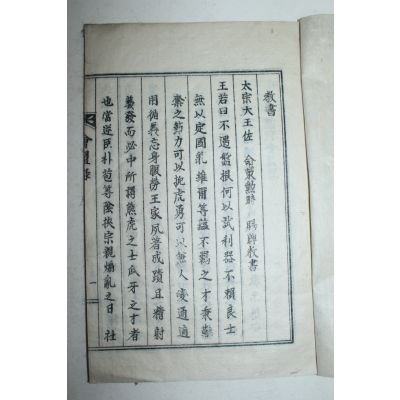 教書
太宗大王佐 命策勲時 賜牌教書
王若曰不遇盤根何以試利器不賴良士
無以定國亂維爾等蘊不羈之才秉
之力可以扼虎勇可以無人
用循義忘身服勞王家夙著成蹟且精射
藝發而必中所謂熊虎之士爪牙之才者
也當逆臣朴苞等陰挾宗親煽亂之日 社
一